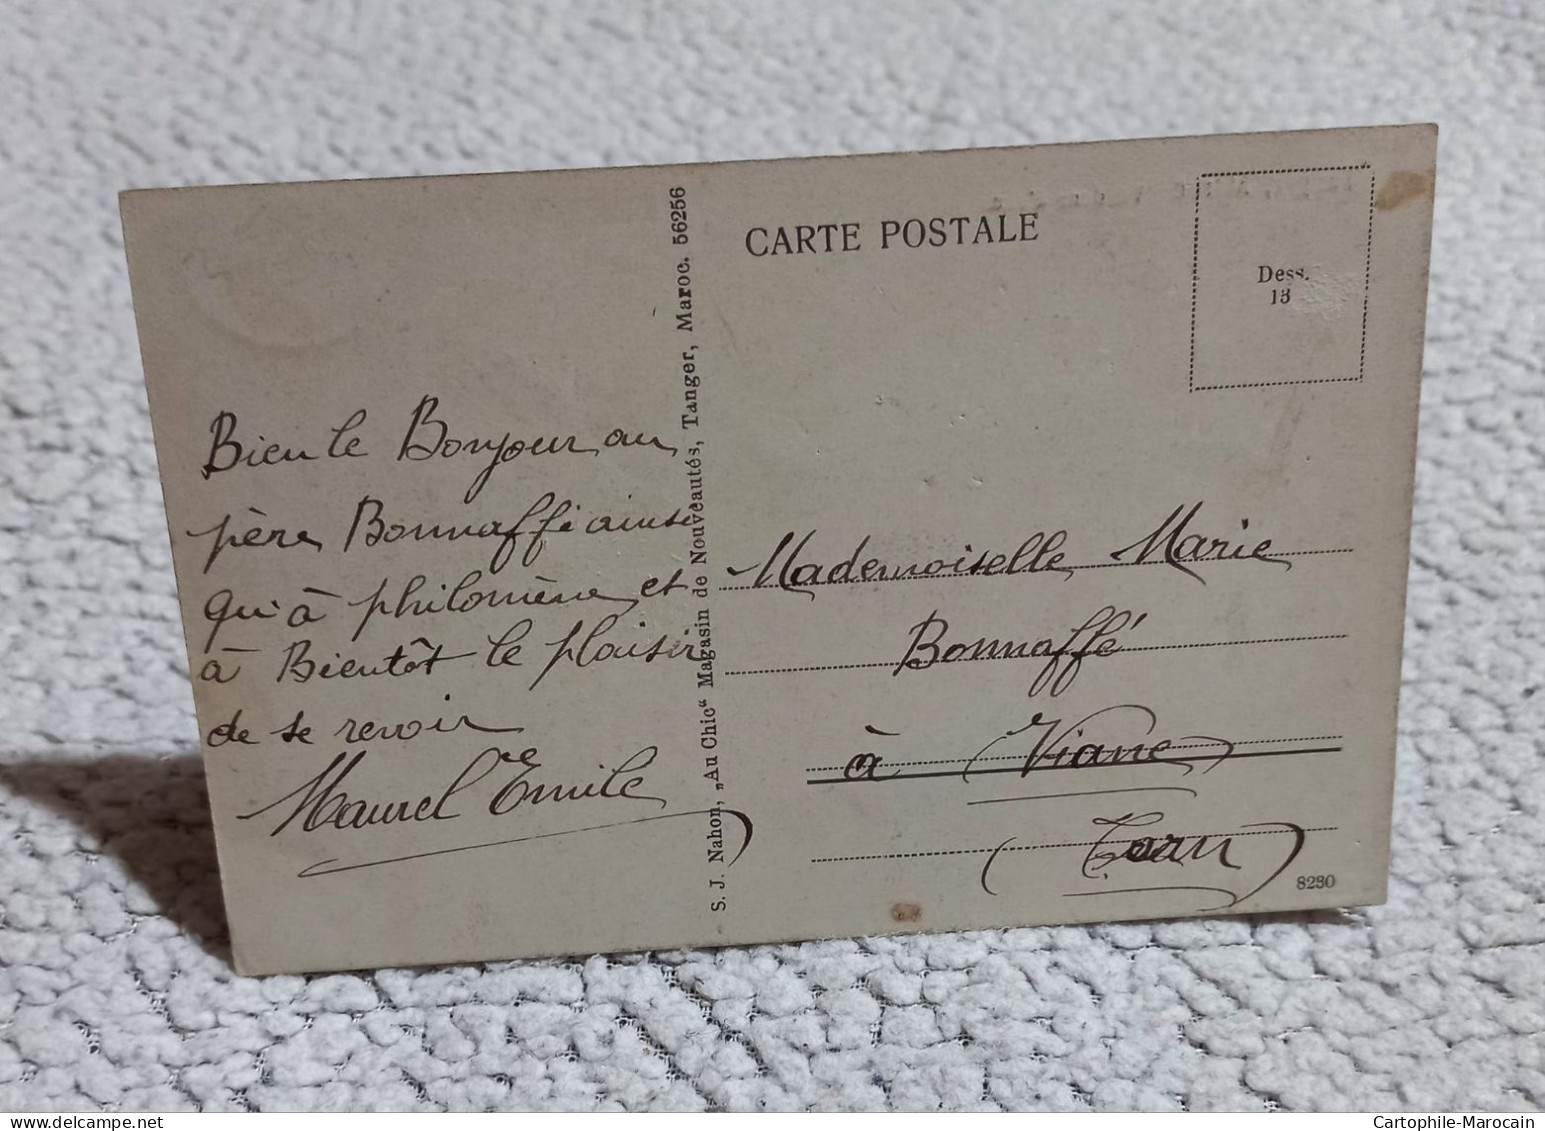 CARTE POSTALE
Dess.
13
Bien le Bonjour au
père Bonnaffé ainsi
qu'à philomène et
à Bientôt le plaisir
de se revoir
Maurel Emile
S. J. Nahon, „Au Chic“ Magasin de Nouveautés, Tanger, Maroc. 56256
Mademoiselle Marie
Bonnaffé
à Viane
(Tarn)
8280
delcampe.net
Cartophile-Marocain